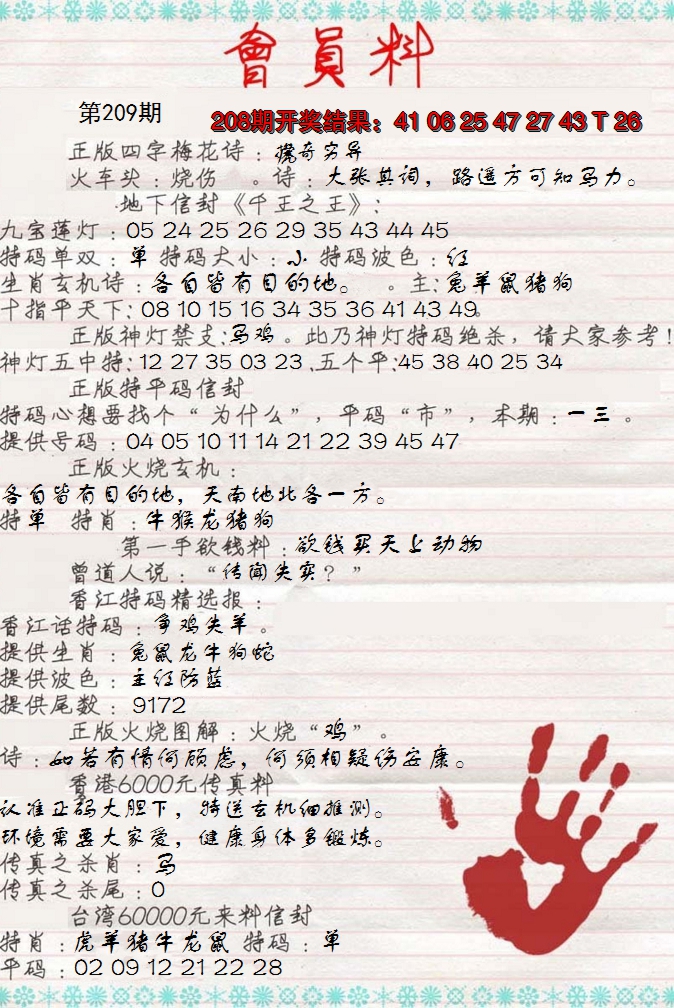 會員料
第209期
208期开奖结果：41 06 25 47 27 43 T 26
正版四字梅花诗：攪奇穷异
火车头：烧伤 。诗：大张其词，路遥方可知马力。
地下信封《千王之王》：
九宝莲灯：05 24 25 26 29 35 43 44 45
特码单双：单 特码大小：小 特码波色：红
生肖玄机诗：各自皆有目的地。 。主：兔羊鼠猪狗
十指平天下：08 10 15 16 34 35 36 41 43 49。
正版神灯禁支：马鸡。此乃神灯特码绝杀，请大家参考！
神灯五中特：12 27 35 03 23 .五个平：45 38 40 25 34
正版特平码信封
特码心想要找个“为什么”，平码“市”，本期：一三。
提供号码：04 05 10 11 14 21 22 39 45 47
正版火烧玄机：
各自皆有目的地，天南地北各一方。
特单 特肖：牛猴龙猪狗
第一手欲钱料：欲钱买天上动物
曾道人说：“传闻失实？”
香江特码精选报：
香江话特码：争鸡失羊。
提供生肖：兔鼠龙牛狗蛇
提供波色：主红防蓝
提供尾数：9172
正版火烧图解：火烧“鸡”。
诗：如若有情何顾虑，何须相疑伤安康。
香港6000元传真料
认准正码大胆下，特送玄机细推测。
环境需要大家爱，健康身体多锻炼。
传真之杀肖：马
传真之杀尾：0
台湾60000元来料信封
特肖：虎羊猪牛龙鼠 特码：单
平码：02 09 12 21 22 28